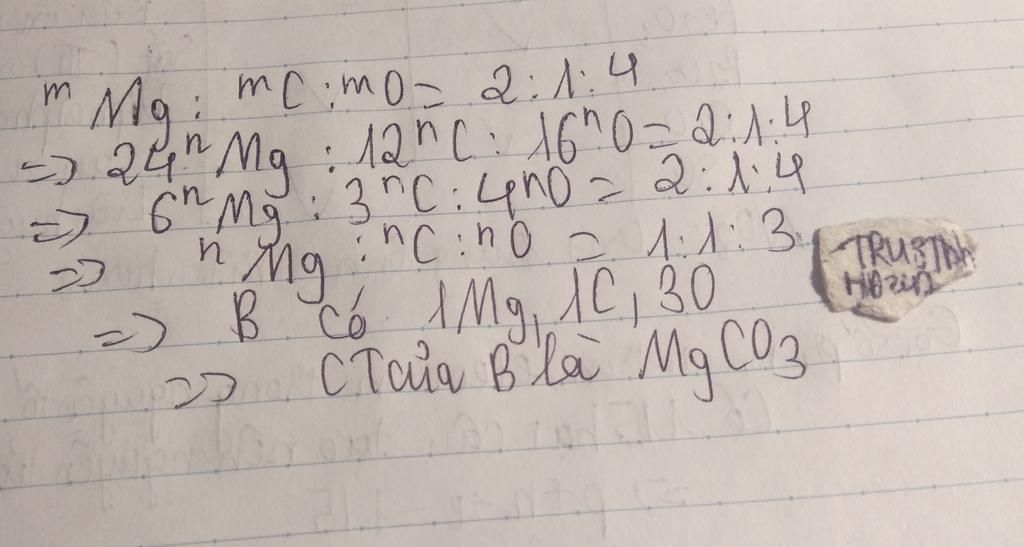 mMg : mC : mO = 2 : 1 : 4
=> 24nMg : 12nC : 16nO = 2 : 1 : 4
=> 6nMg : 3nC : 4nO = 2 : 1 : 4
=> nMg : nC : nO = 1 : 1 : 3
=> B có 1Mg, 1C, 3O
=> CT của B là MgCO3